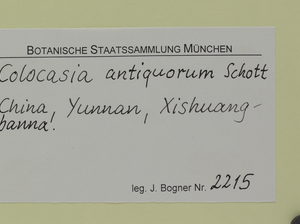 BOTANISCHE STAATSSAMMLUNG MÜNCHEN
Colocasia antiquorum Schott
China, Yunnan, Xishuang-
banna.
leg. J. Bogner Nr. 2215